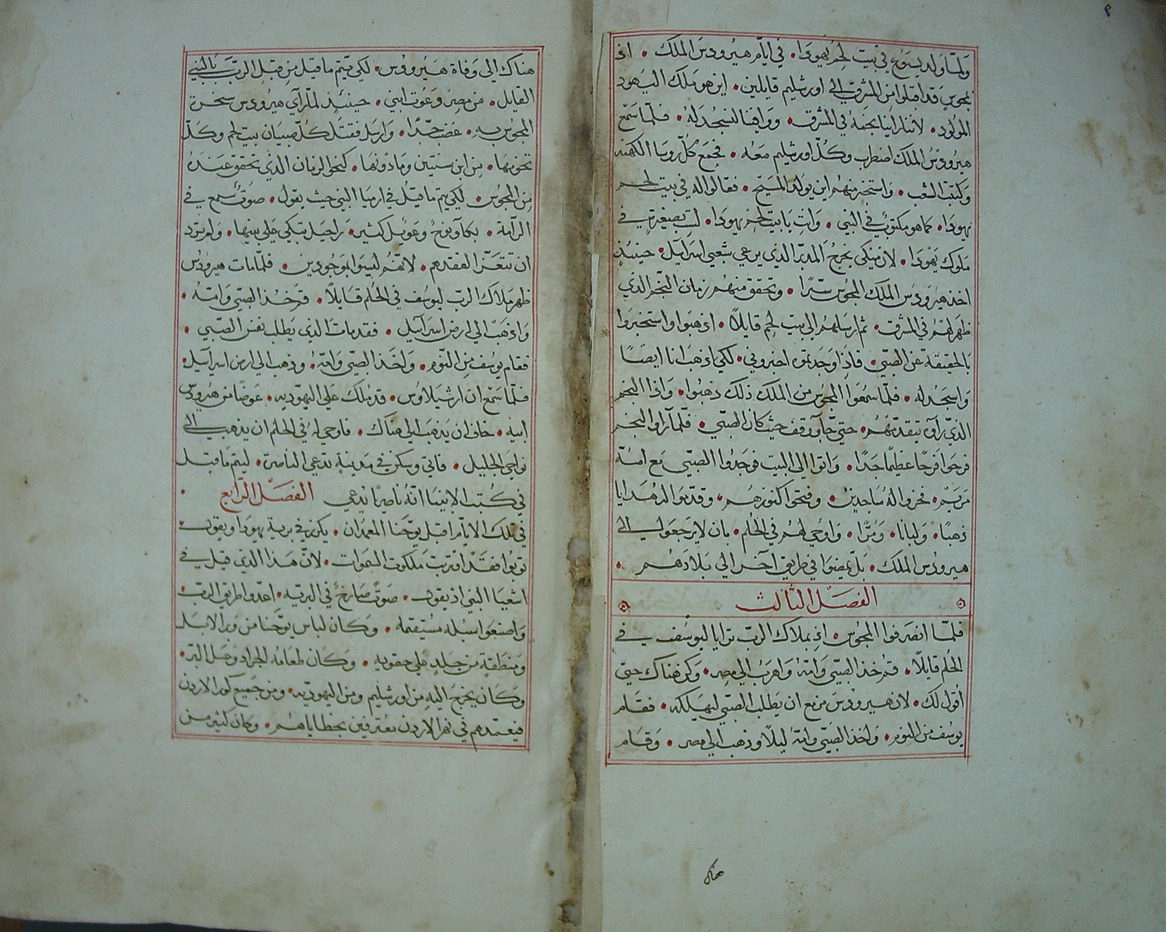 ٢
ولما ولد يسوع في بيت لحم يهودا • في ايام هيرودس الملك • اذ
بمجوس قد اقبلوا من المشرق الى اورشليم قايلين • اين هو ملك اليهود
المولود • لاننا راينا نجمه في المشرق • ووافينا لنسجد له • فلما سمع
هيرودس الملك اضطرب وكل اورشليم معه • فجمع كل روسا الكهنة
وكتبة الشعب • واستخبرهم اين يولد المسيح • فقالوا له في بيت لحم
يهودا • كما هو مكتوب في النبي • وانت يا بيت لحم يهودا • لست بصغيرة في
ملوك يهودا • لان منكي يخرج المدبر الذي يرعي شعبي اسراييل • حينيذ
اخذ هيرودس الملك المجوس سرا • وتحقق منهم زمان النجم الذي
ظهر لهم في المشرق • ثم ارسلهم الى بيت لحم قايلا • اذهبوا واستخبروا
بالحقيقة عن الصبي • فاذا وجدتموه اخبروني • لكي اذهب انا ايضا
واسجد له • فلما سمعوا المجوس من الملك ذلك ذهبوا • واذا النجم
الذي راوه يتقدمهم • حتى جا ووقف حيث كان الصبي • فلما راوا النجم
فرحوا فرحا عظيما جدا • واتوا الى البيت فوجدوا الصبي مع امه
مريم • فخروا له ساجدين • وفتحوا كنوزهم • وقدموا له هدايا
ذهبا • ولبانا • ومرا • واوحي لهم في الحلم • بان لا يرجعوا الى
هيرودس الملك • بل يمضوا في طريق اخر الى بلادهم •
الفصل الثالث
فلما انصرفوا المجوس • اذ بملاك الرب ترايا ليوسف في
الحلم قايلا • قم خذ الصبي وامه واهرب الى مصر • وكن هناك حتى
اقول لك • لان هيرودس مزمع ان يطلب الصبي ليهلكه • فقام
يوسف من النوم • واخذ الصبي وامه ليلا وذهب الى مصر • وقام
هناك
هناك الى وفاة هيرودس • لكي يتم ما قيل من قبل الرب بالنبي
القايل • من مصر دعوت ابني • حينيذ لما راي هيرودس سخرت
المجوس به • غضب جدا • وارسل فقتل كل صبيان بيت لحم وكل
تخومها • من ابن سنتين وما دونها • كنحو الزمان الذي تحقق عنده
من المجوس • لكي يتم ما قيل في ارميا النبي حيث يقول • صوت سمع في
الرامة • بكا ونوح وعويل كثير • راحيل تبكي على بنيها • ولم ترد
ان تتعزا لفقدهم • لانهم ليسوا بموجودين • فلما مات هيرودس
ظهر ملاك الرب ليوسف في الحلم قايلا • قم خذ الصبي وامه •
واذهب الى ارض اسراييل • فقد مات الذي يطلب نفس الصبي •
فقام يوسف من النوم • واخذ الصبي وامه • وذهب الى ارض اسراييل •
فلما سمع ان ارشيلاوس • قد ملك على اليهودية • عوضا من هيرودس
ابيه • خاف ان يذهب الى هناك • فاوحي له في الحلم ان يذهب الى
نواحي الجليل • فاتي وسكن في مدينة تدعي الناصرة • ليتم ما قيل
في كتب الانبيا انه ناصريا يدعي الفصل الرابع •
في تلك الايام اقبل يوحنا المعمدان • يكرز في برية يهودا ويقول •
توبوا فقد اقتربت ملكوت السموات • لان هذا الذي قيل في
اشعيا النبي اذ يقول • صوت صارخ في البرية • اعدوا طريق الرب
واصنعوا سبله مستقيمة • وكان لباس يوحنا من وبر الابل
ومنطقة من جلد على حقويه • وكان طعامه الجراد وعسل البر •
وكان يخرج اليه من اورشليم ومن اليهودية • ومن جميع كور الاردن
فيعمدهم في نهر الاردن معترفين بخطاياهم • وكان كثير من